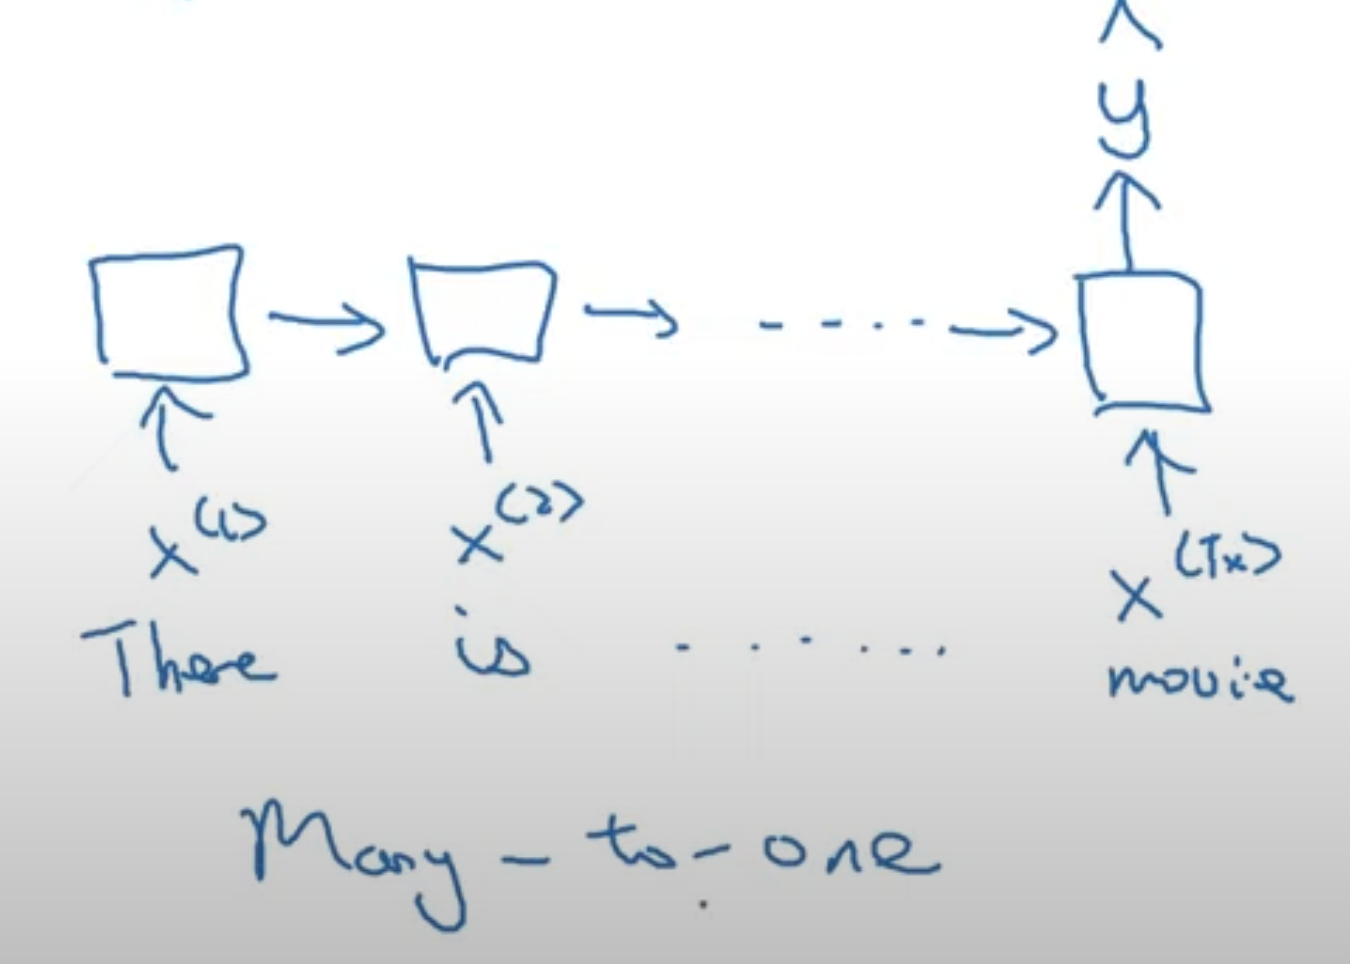 ŷ
x⟨1⟩ x⟨2⟩ x⟨Tx⟩
There is ....... movie
Many-to-one